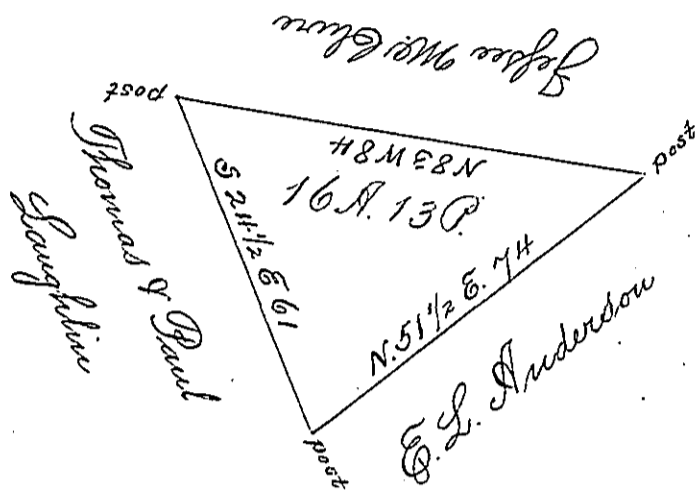 Jessee McClure
post
post
N 83 W 84
16 A. 13 P.
S 24 1/2 E 61
N. 51 1/2 E. 74
Thomas & Paul
Laughlin
E. L. Anderson
post